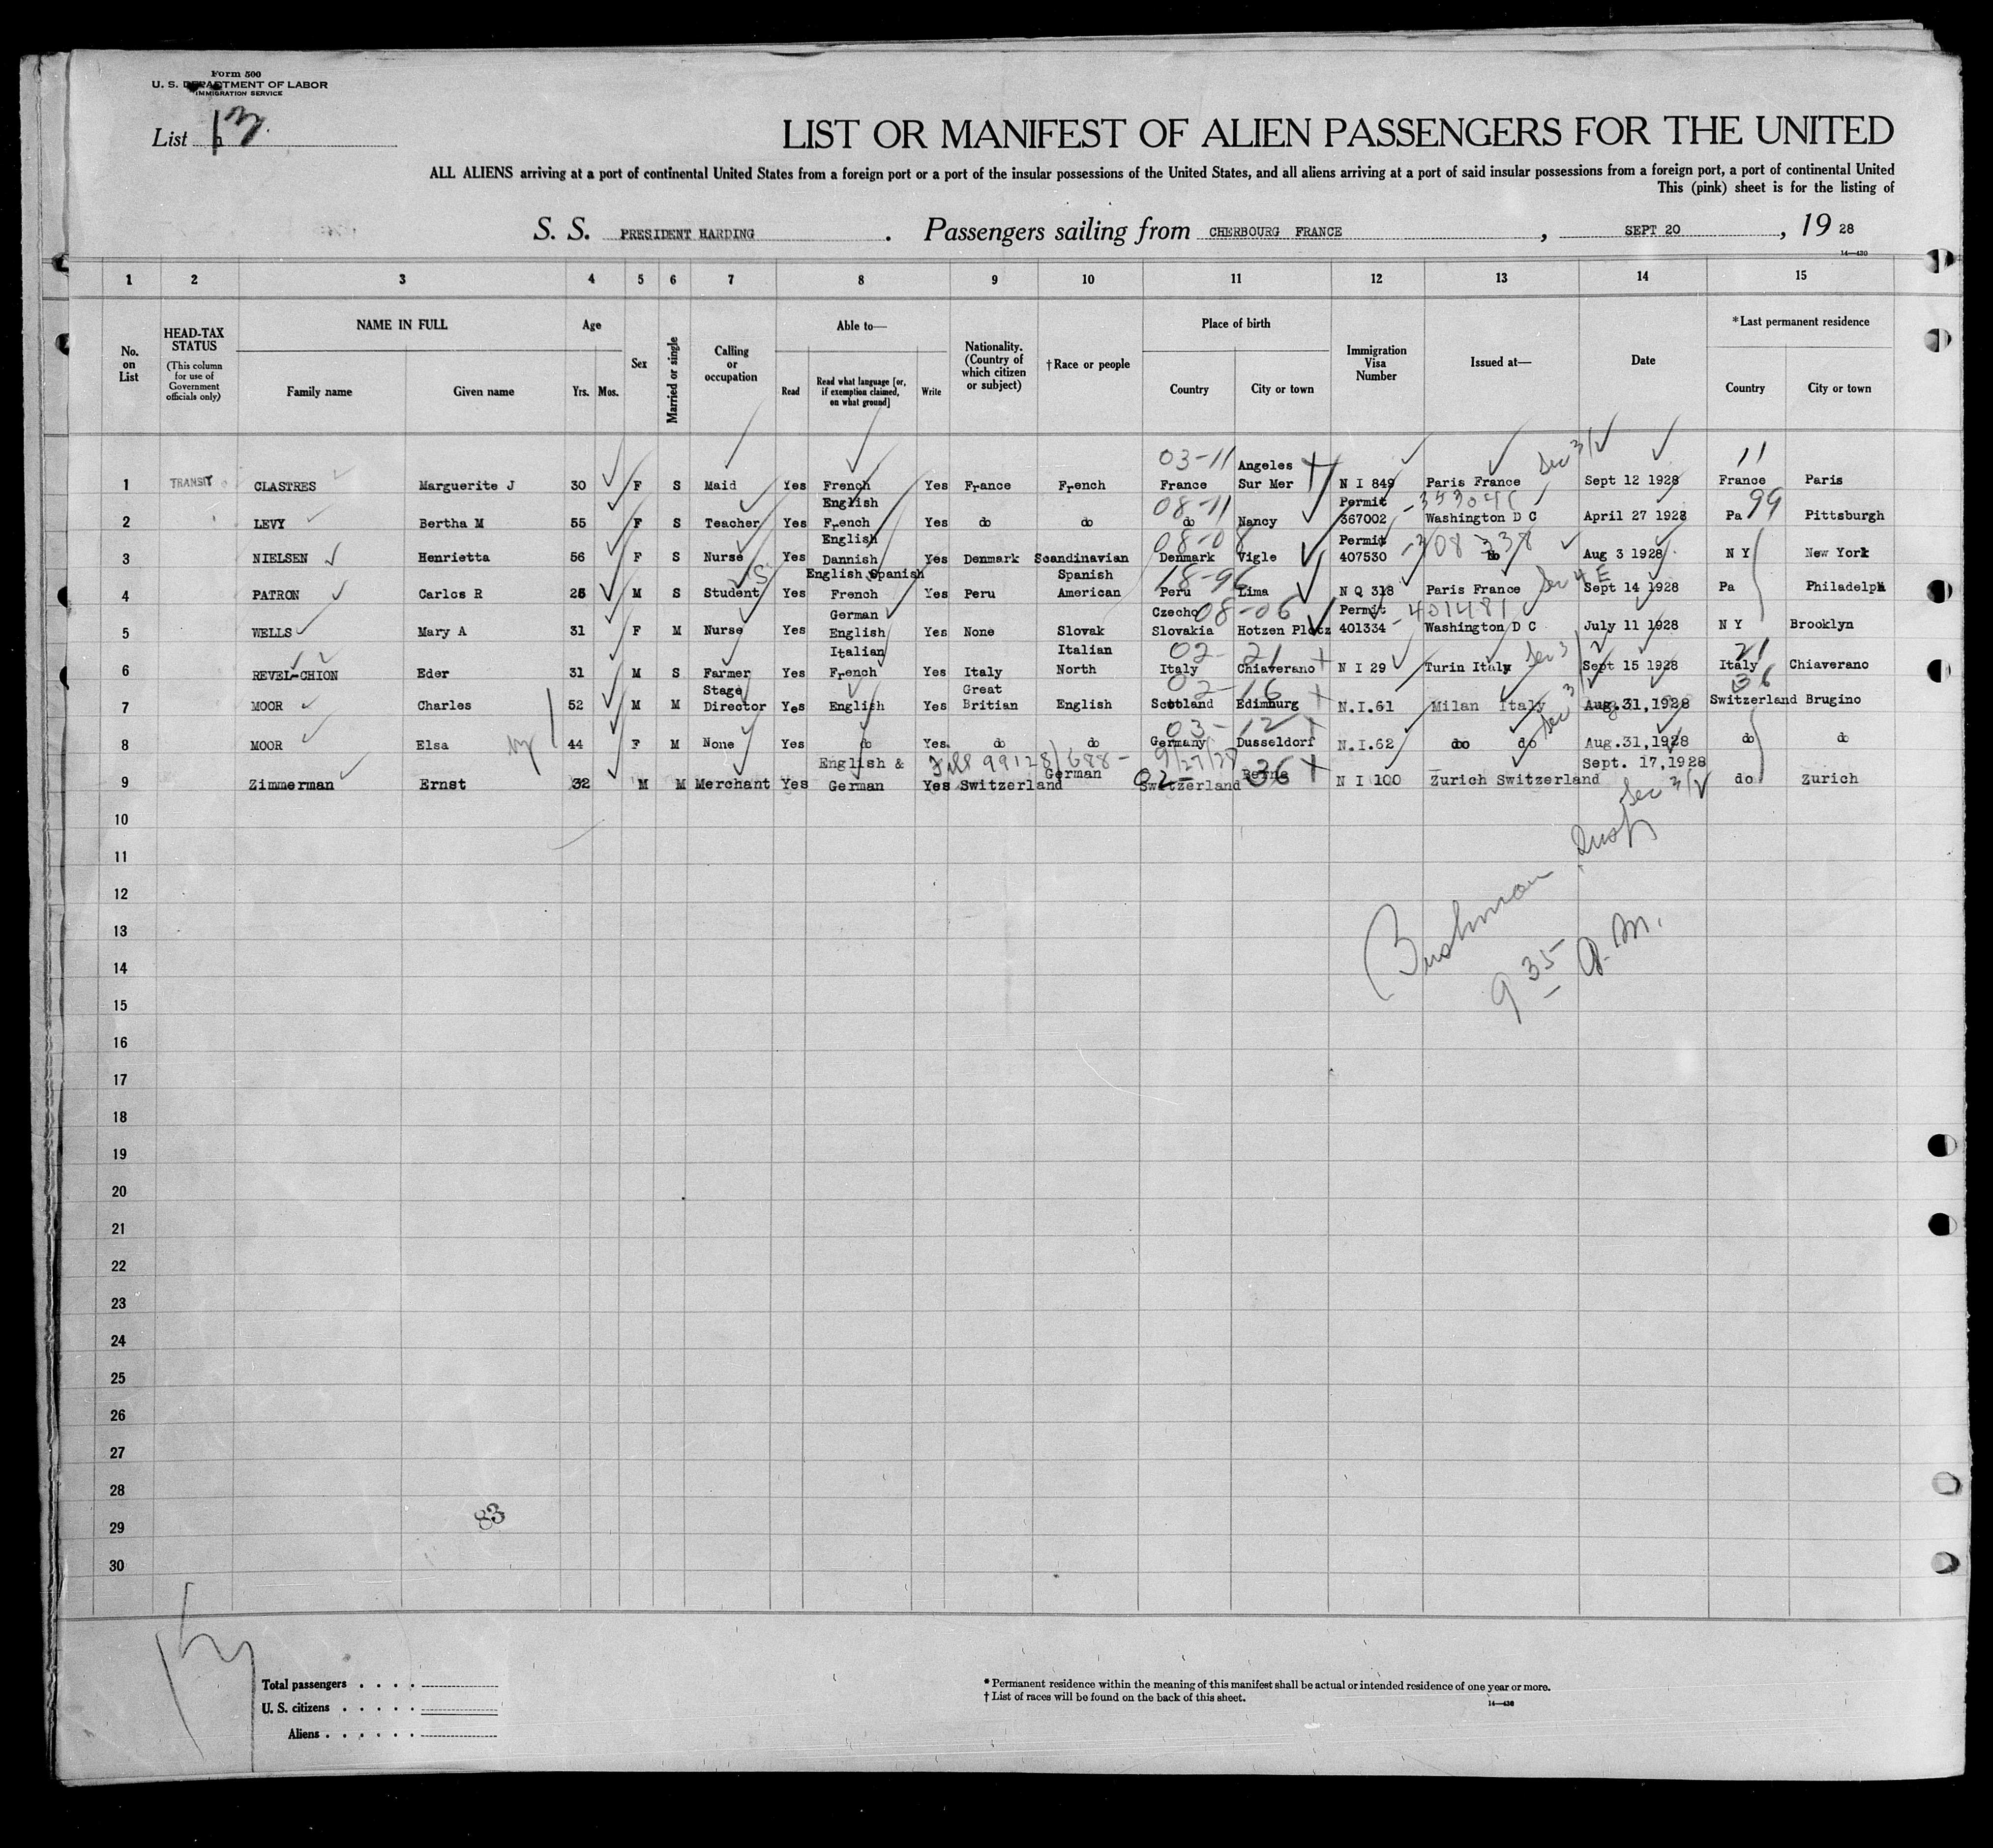 Form 500
U. S. DEPARTMENT OF LABOR
IMMIGRATION SERVICE
List 13
LIST OR MANIFEST OF ALIEN PASSENGERS FOR THE UNITED
ALL ALIENS arriving at a port of continental United States from a foreign port or a port of the insular possessions of the United States, and all aliens arriving at a port of said insular possessions from a foreign port, a port of continental United
This (pink) sheet is for the listing of
S. S. PRESIDENT HARDING . Passengers sailing from CHERBOURG FRANCE , SEPT 20 , 19 28
14—430
1 2 3 4 5 6 7 8 9 10 11 12 13 14 15
No. on List
HEAD-TAX STATUS (This column for use of Government officials only)
NAME IN FULL Family name Given name
Age Yrs. Mos.
Sex
Married or single
Calling or occupation
Able to— Read Read what language [or, if exemption claimed, on what ground] Write
Nationality. (Country of which citizen or subject)
†Race or people
Place of birth Country City or town
Immigration Visa Number
Issued at—
Date
*Last permanent residence Country City or town
03-11 Angeles Sec 3/2 11
1 TRANSIT CLASTRES Marguerite J 30 F S Maid Yes French Yes France French France Sur Mer N I 849 Paris France Sept 12 1928 France Paris
English 08-11 Permit 99
2 LEVY Bertha M 55 F S Teacher Yes French Yes do do do Nancy 367002 Washington D C April 27 1928 Pa Pittsburgh
English 08-08 Permit
3 NIELSEN Henrietta 56 F S Nurse Yes Dannish Yes Denmark Scandinavian Denmark Vigle 407530 Do Aug 3 1928 N Y New York
English Spanish Spanish 18-96 Sec 4 E
4 PATRON Carlos R M S Student Yes French Yes Peru American Peru Lima N Q 318 Paris France Sept 14 1928 Pa Philadelph
German Czecho 08-06 Permit 401481
5 WELLS Mary A 31 F M Nurse Yes English Yes None Slovak Slovakia Hotzen Plotz 401334 Washington D C July 11 1928 N Y Brooklyn
Italian Italian 02-21 Sec 3/2 21
6 REVEL-CHION Eder 31 M S Farmer Yes French Yes Italy North Italy Chiaverano N I 29 Turin Italy Sept 15 1928 Italy Chiaverano
Stage Great 02-16 Sec 3/2 36
7 MOOR Charles 52 M M Director Yes English Yes Britian English Scotland Edimburg N.I.61 Milan Italy Aug.31,1928 Switzerland Brugino
03-12 Sec
8 MOOR Elsa 44 F M None Yes do Yes do do Germany Dusseldorf N.I.62 do do Aug.31,1928 do do
English & 99128/688- 9/27/28 German 02-36 Berne Sept. 17,1928
9 Zimmerman Ernst 32 M M Merchant Yes German Yes Switzerland Switzerland N I 100 Zurich Switzerland do Zurich
Sec 3/2
10
11
12
13
14
15
16
17
18
19
20
21
22
23
24
25
26
27
28
29
30
Bushman Insp
9 35 A.M.
83
Total passengers
U. S. citizens
Aliens
* Permanent residence within the meaning of this manifest shall be actual or intended residence of one year or more.
† List of races will be found on the back of this sheet.
14—430